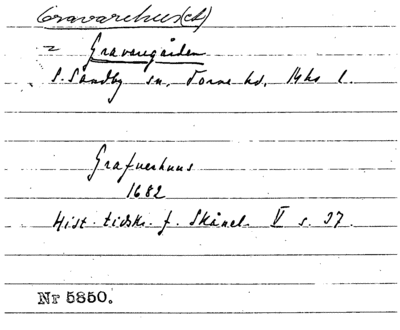 Gravarehus(et)
= Gravaregården
S. Sandby sn, Torna hd, Mhs l.
Grafverhuus
1682
Hist. tidskr. f. Skånel. V s. 37.
Nr 5850.